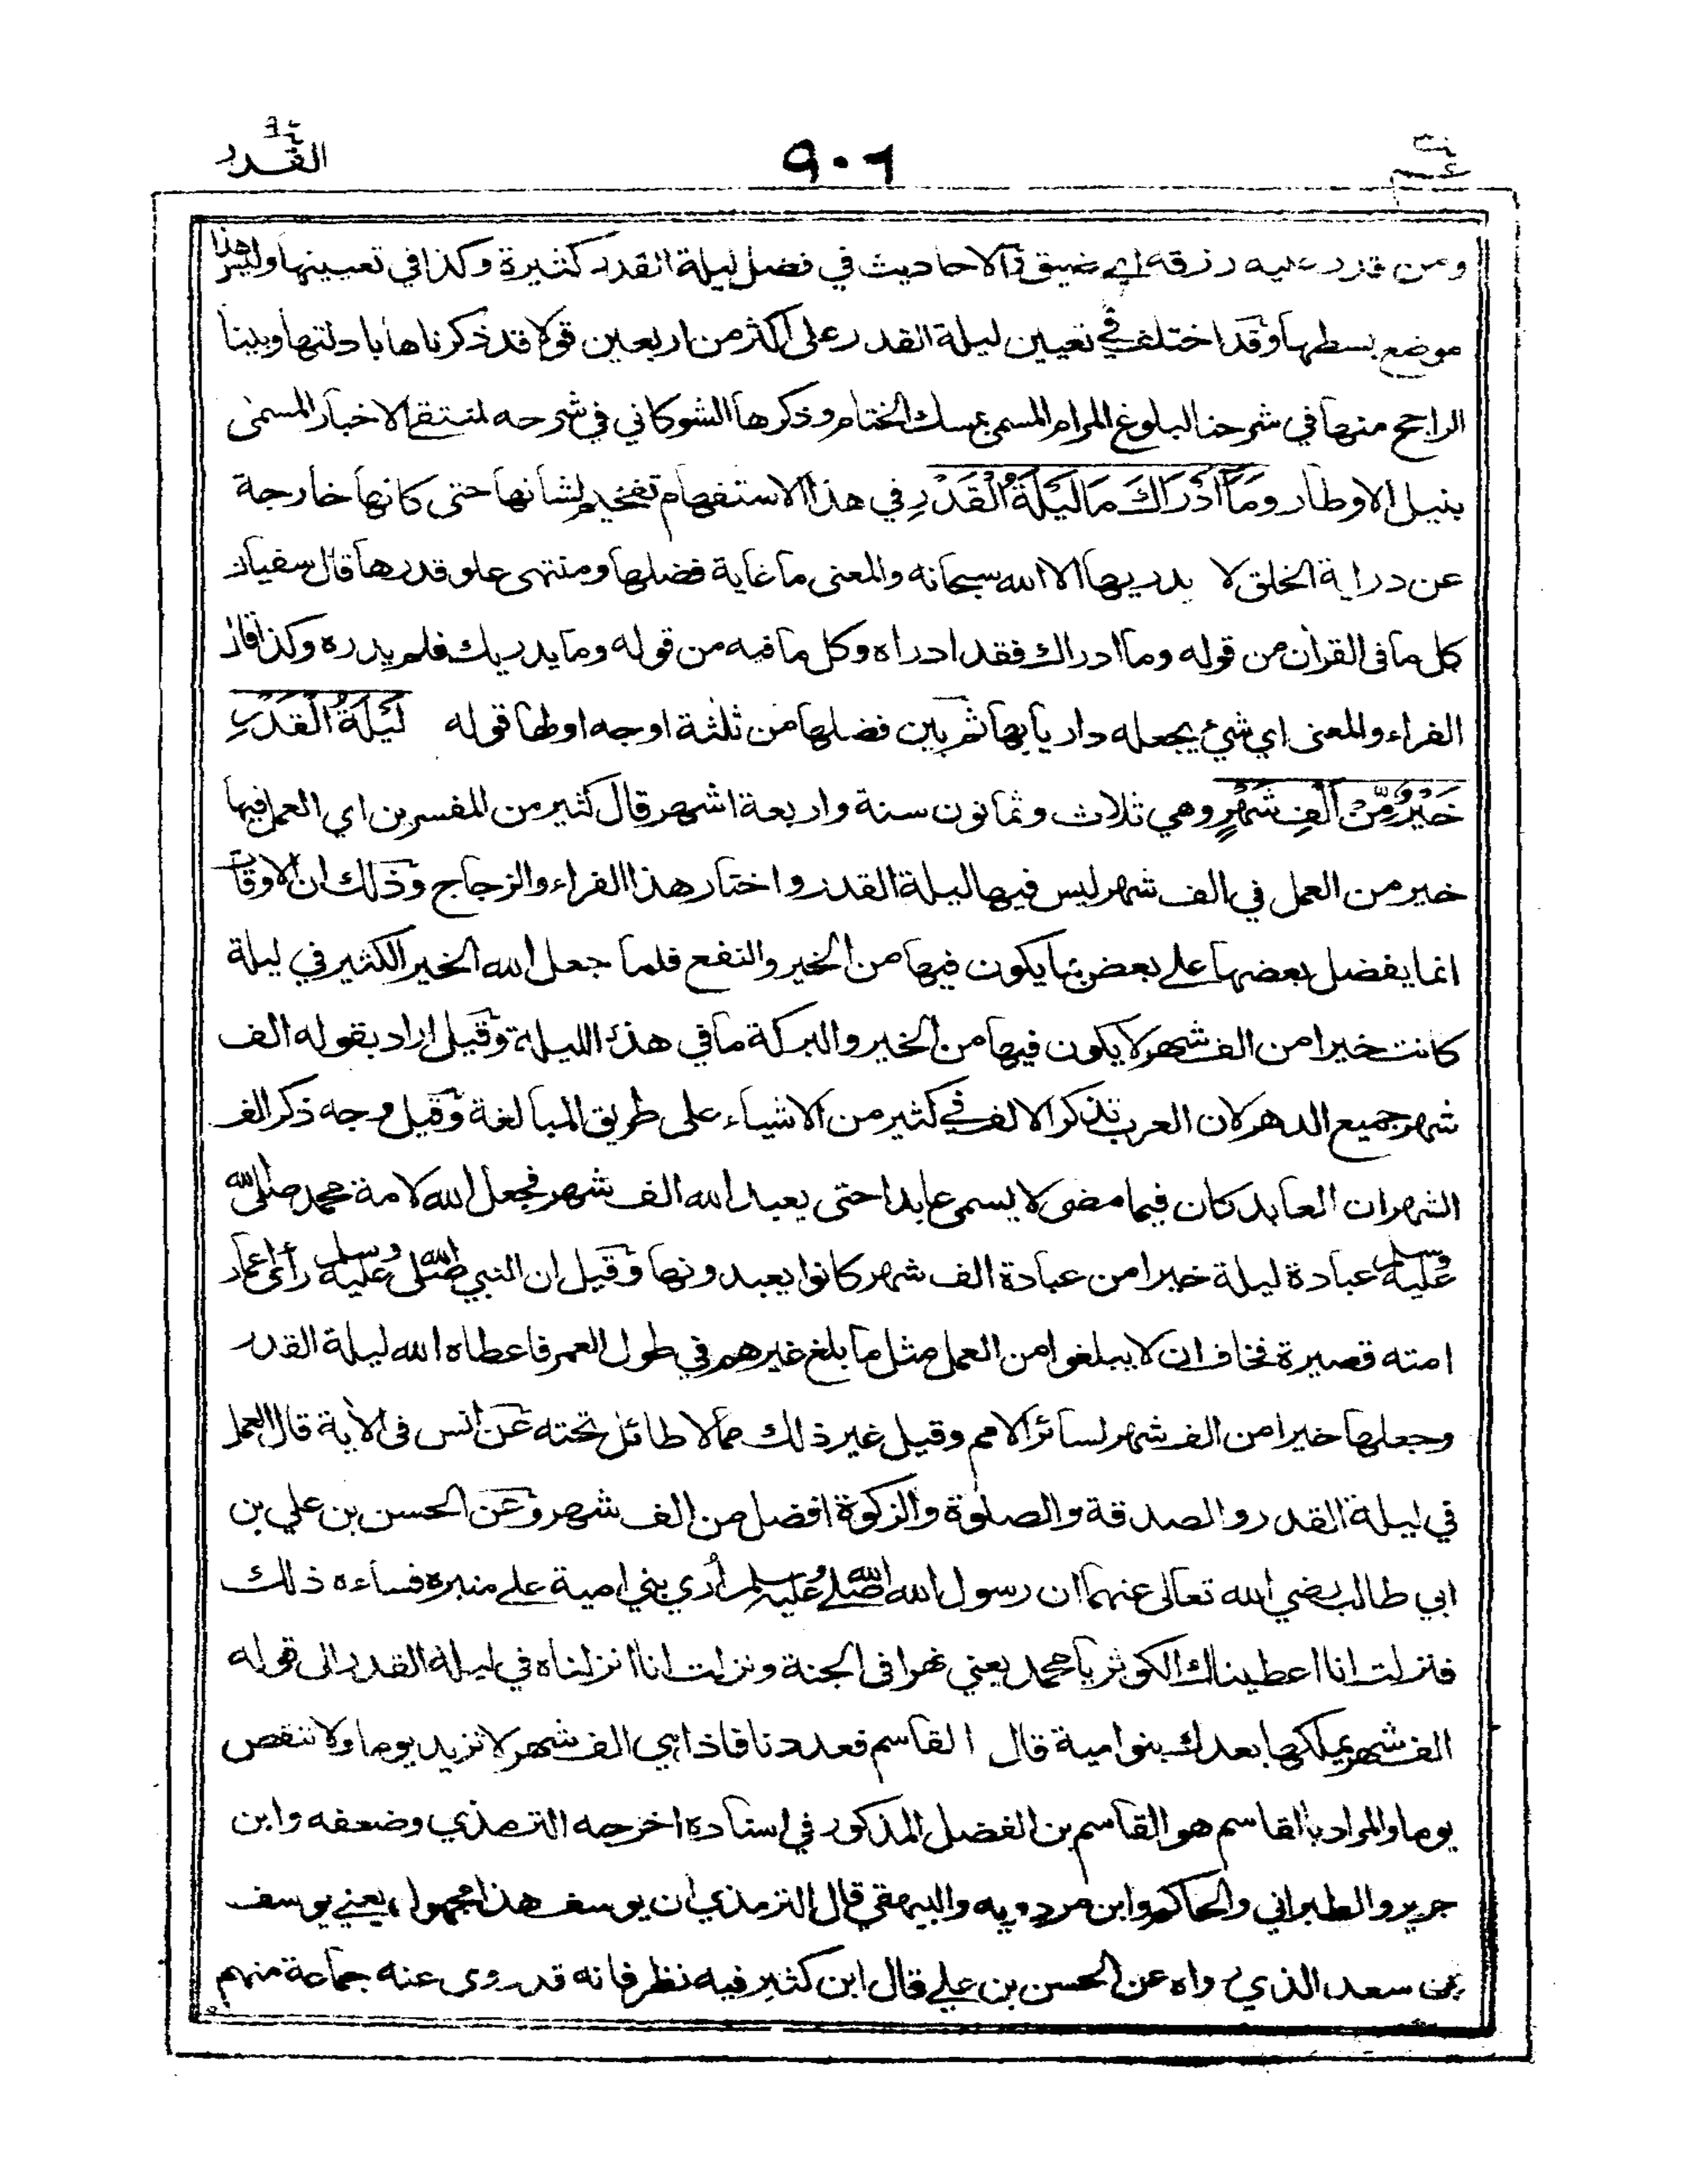 القدر ٩٠٦ عم
ومن قدر عليه رزقه اي ضيق والاحاديث في فضل ليلة القدر كثيرة وكذا في تعيينها وليس هذا
موضع بسطها وقد اختلف في تعيين ليلة القدر على اكثر من اربعين قولا قد ذكرناها بادلتها وبينا
الراجح منها في شرحنا لبلوغ المرام المسمى بمسك الختام وذكرها الشوكاني في شرحه لمنتقى الاخبار المسمى
بنيل الاوطار وَمَا أَدْرَاكَ مَا لَيْلَةُ الْقَدْرِ في هذا الاستفهام تفخيم لشانها حتى كانها خارجة
عن دراية الخلق لا يدريها الا الله سبحانه والمعنى ما غاية فضلها ومنتهى علو قدرها قال سفيان
كل ما فى القرأن من قوله وما ادراك فقد ادراه وكل ما فيه من قوله وما يدريك فلم يدره وكذا قال
الفراء والمعنى اي شيء يجعله داريا بها ثم بين فضلها من ثلثة اوجه اولها قوله لَيْلَةُ الْقَدْرِ
خَيْرٌ مِّنْ أَلْفِ شَهْرٍ وهي ثلاث وثمانون سنة واربعة اشهر قال كثير من المفسرين اي العمل فيها
خير من العمل في الف شهر ليس فيها ليلة القدر واختار هذا الفراء والزجاج وذلك ان الاوقات
انما يفضل بعضها على بعض بما يكون فيها من الخير والنفع فلما جعل الله الخير الكثير في ليلة
كانت خيرا من الف شهر لا يكون فيها من الخير والبركة ما في هذه الليلة وقيل اراد بقوله الف
شهر جميع الدهر لان العرب تذكر الالف في كثير من الاشياء على طريق المبالغة وقيل وجه ذكر الف
الشهر ان العابد كان فيما مضى لا يسمى عابدا حتى يعبد الله الف شهر فجعل الله لامة محمد صلى الله
عليه وسلم عبادة ليلة خيرا من عبادة الف شهر كانوا يعبدونها وقيل ان النبي صلى الله عليه وسلم رأى اعمار
امته قصيرة فخاف ان لا يبلغوا من العمل مثل ما بلغ غيرهم في طول العمر فاعطاه الله ليلة القدر
وجعلها خيرا من الف شهر لسائر الامم وقيل غير ذلك مما لا طائل تحته عن انس فى الأية قال العمل
في ليلة القدر والصدقة والصلوة والزكوة افضل من الف شهر وعن الحسن بن علي بن
ابي طالب رضي الله تعالى عنهما ان رسول الله صلى الله عليه وسلم أري بني امية على منبره فساءه ذلك
فنزلت انا اعطيناك الكوثر يا محمد يعني نهرا فى الجنة ونزلت انا انزلناه في ليلة القدر الى قوله
الف شهر يملكها بعدك بنو امية قال القاسم فعددنا فاذا هي الف شهر لا تزيد يوما ولا تنقص
يوما والمراد بالقاسم هو القاسم بن الفضل المذكور في اسناده اخرجه الترمذي وضعفه وابن
جرير والطبراني والحاكم وابن مردويه والبيهقي قال الترمذي ان يوسف هذا مجهول يعني يوسف
بن سعد الذي رواه عن الحسن بن علي قال ابن كثير فيه نظر فانه قد روى عنه جماعة منهم